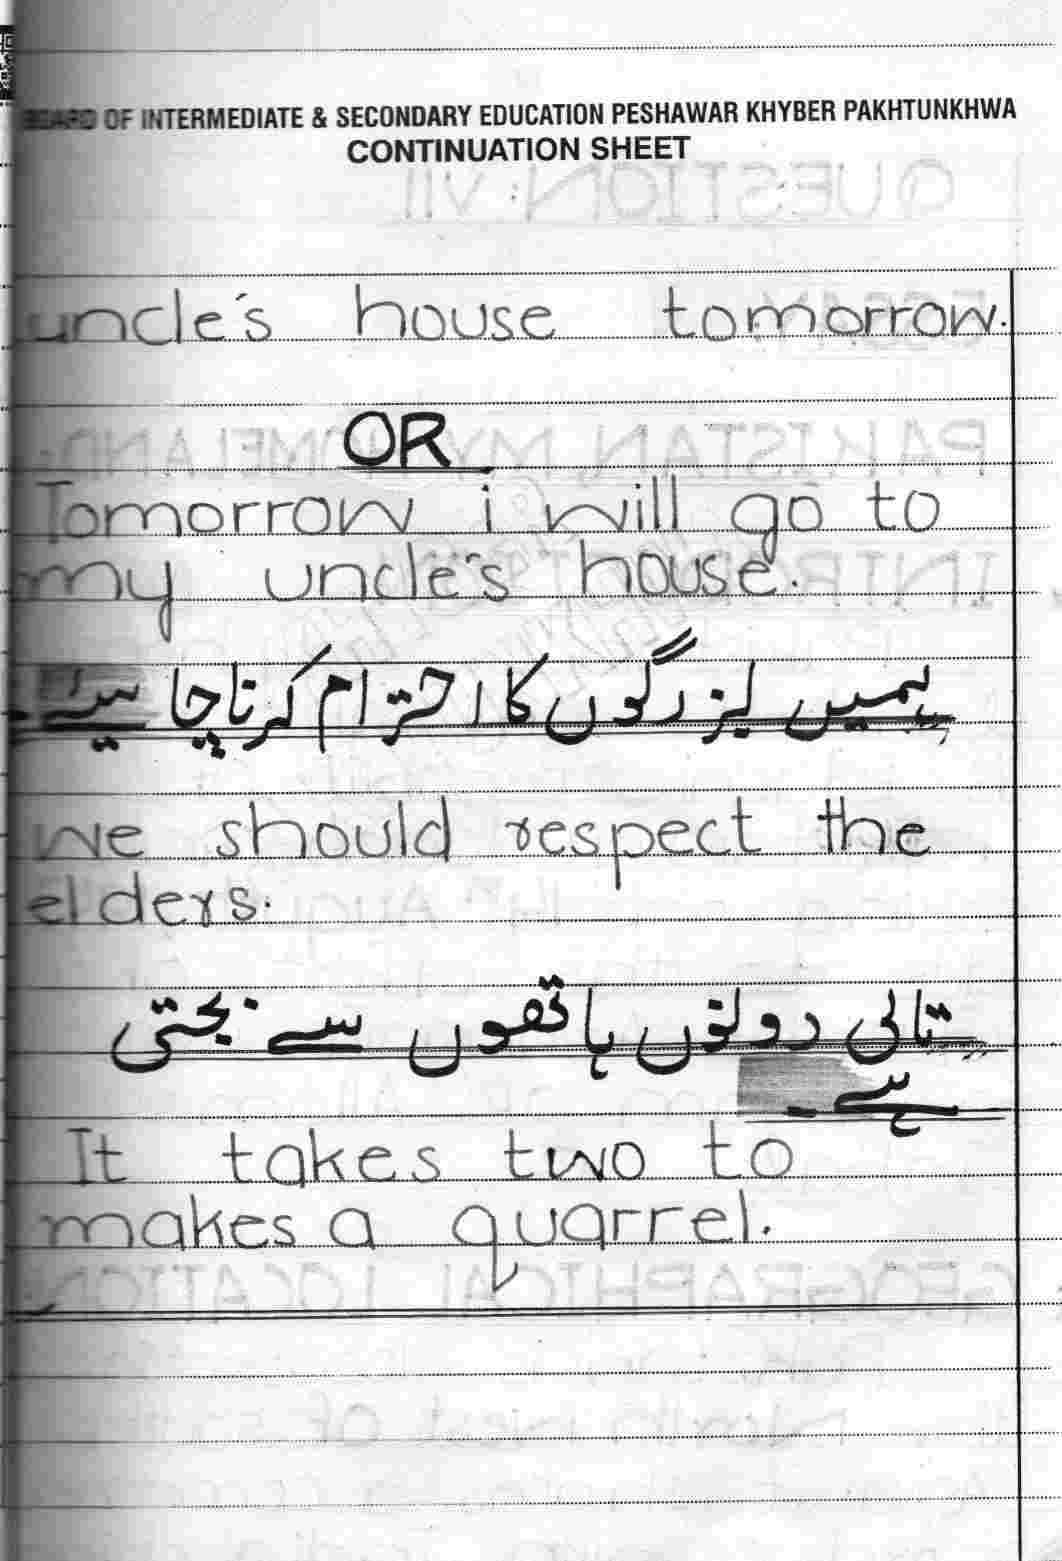 BOARD OF INTERMEDIATE & SECONDARY EDUCATION PESHAWAR KHYBER PAKHTUNKHWA
CONTINUATION SHEET
uncle's house tomorrow.
OR
Tomorrow i will go to
my uncle's house.
ہمیں بزرگوں کا احترام کرنا چاہیئے۔
we should respect the
elders.
تالی دونوں ہاتھوں سے بجتی
ہے۔
It takes two to
makes a quarrel.